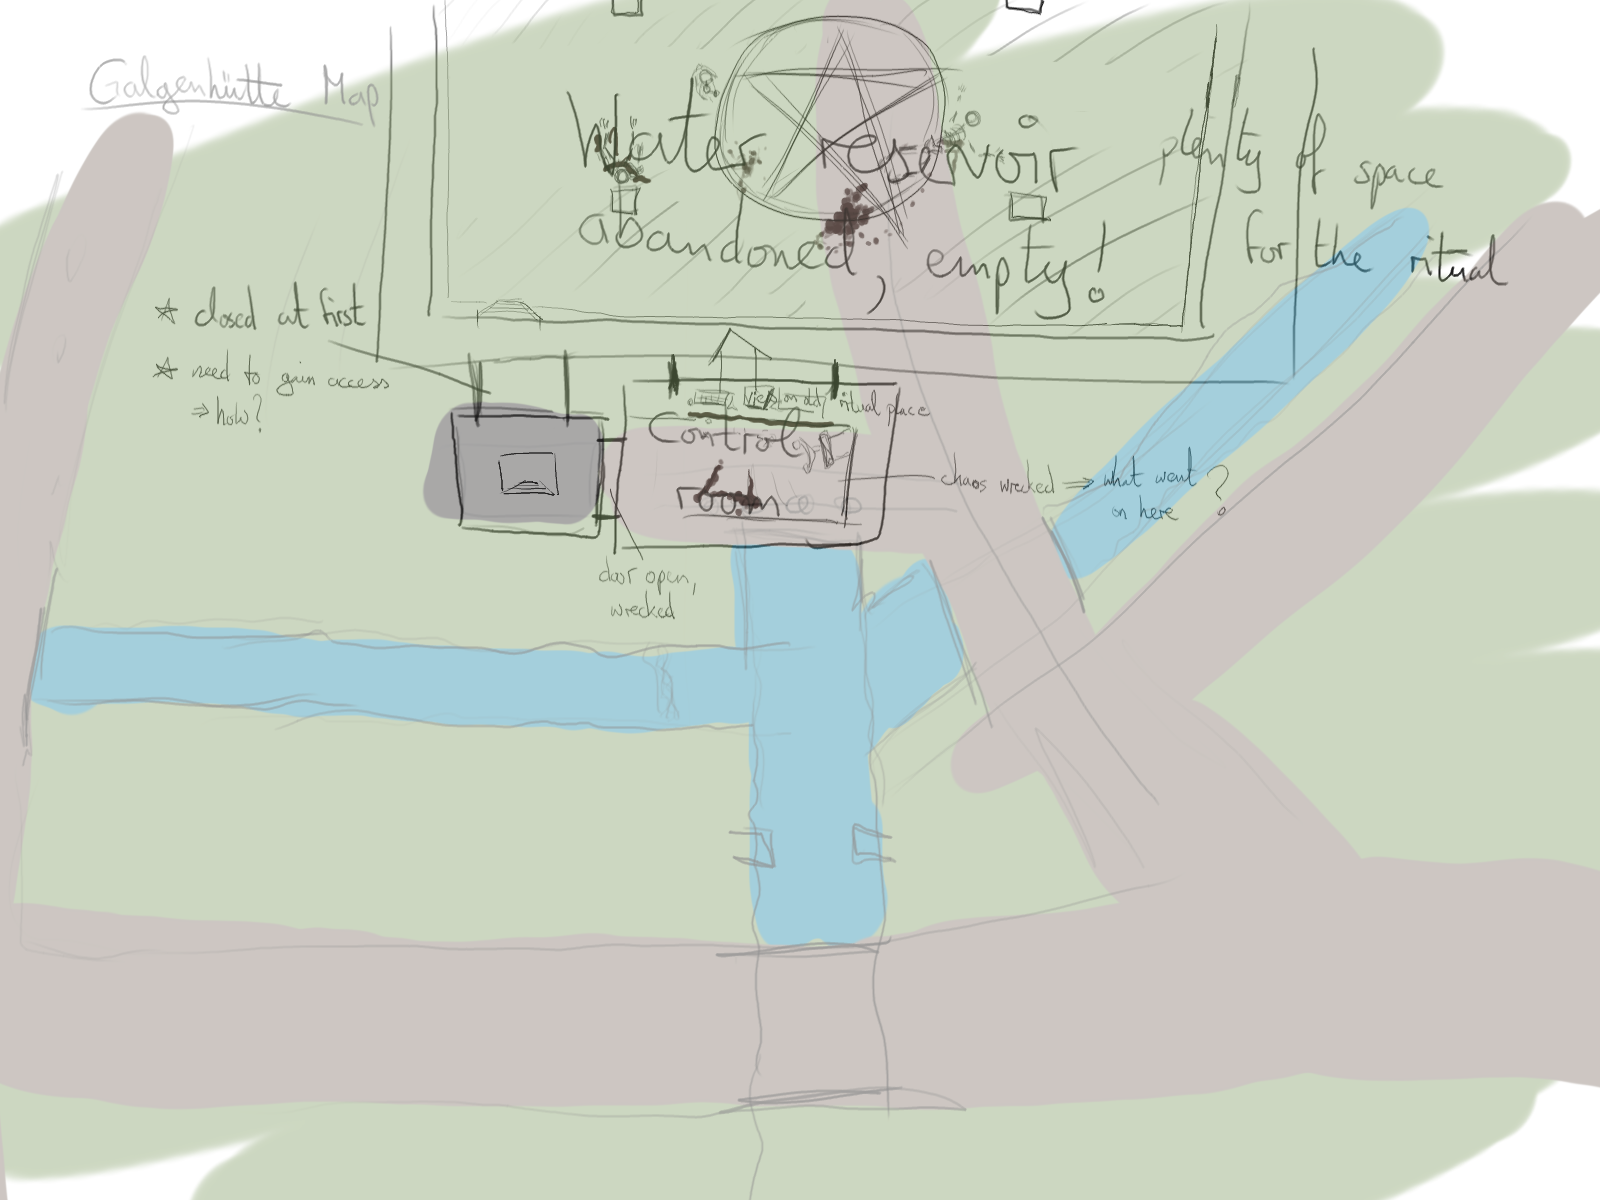 Galgenhütte Map
Water reservoir
abandoned, empty!
plenty of space
for the ritual
* closed at first
* need to gain access
⇒ how?
view on old ritual place
Control
room
chaos wrecked ⇒ what went
on here ?
door open,
wrecked